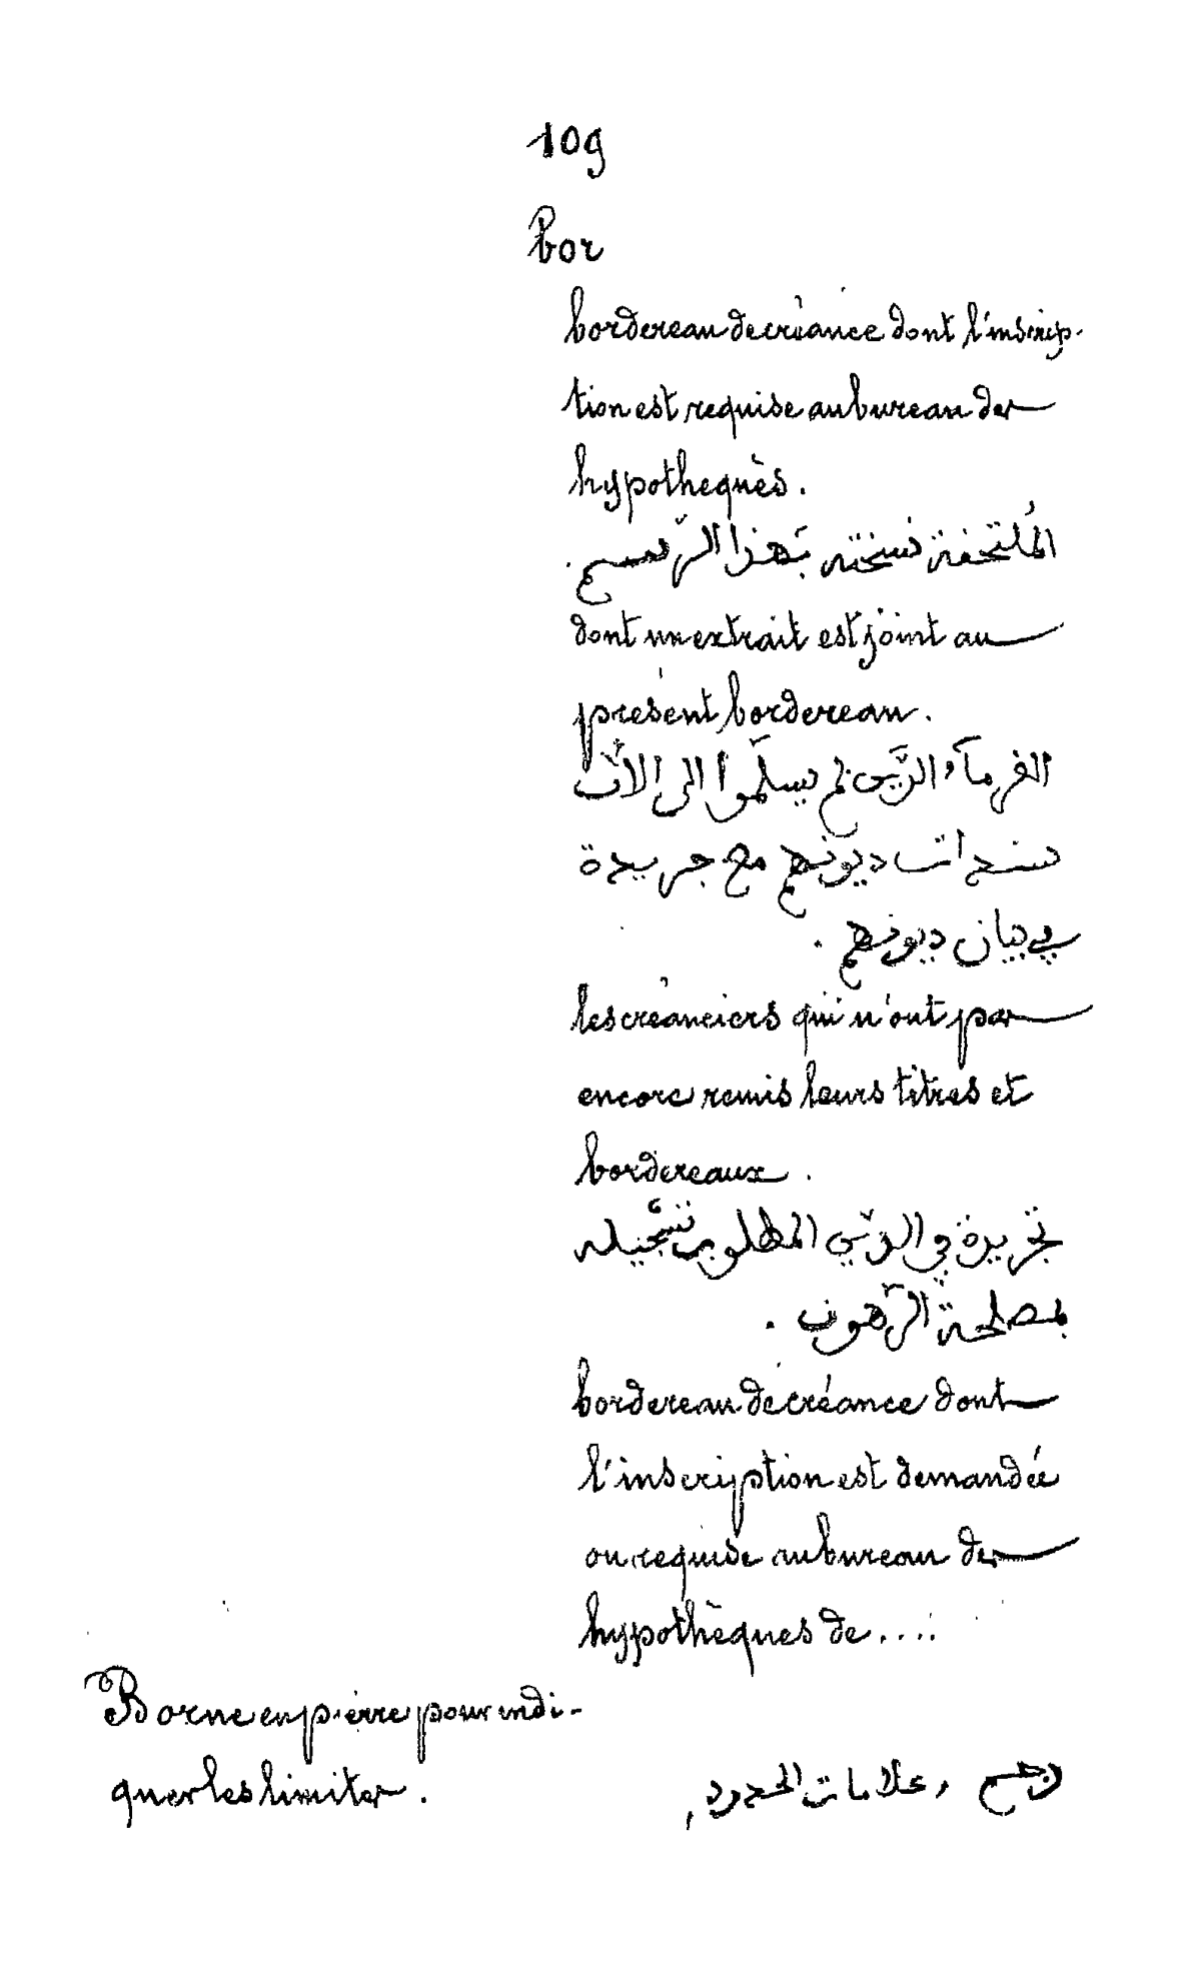 109
bor
bordereau de créance dont l'inscrip-
tion est requise au bureau des
hypothequès.
المُلتحفة نسخته بهذا الرّسم.
dont un extrait est joint au
présent bordereau.
الغرمآء الذّين لم يسلّموا الى الآن
سندات ديونهم مع جريدة
في بيان ديونهم.
les créanciers qui n'ont pas
encore remis leurs titres et
bordereaux.
تجريدة في الدّين المطلوب تسْجيله
بمصلحة الرّهون.
bordereau de créance dont
l'inscription est demandée
ou requise au bureau des
hypothèques de....
Borne en pierre pour indi-
quer les limites.
، علامات الحدود،